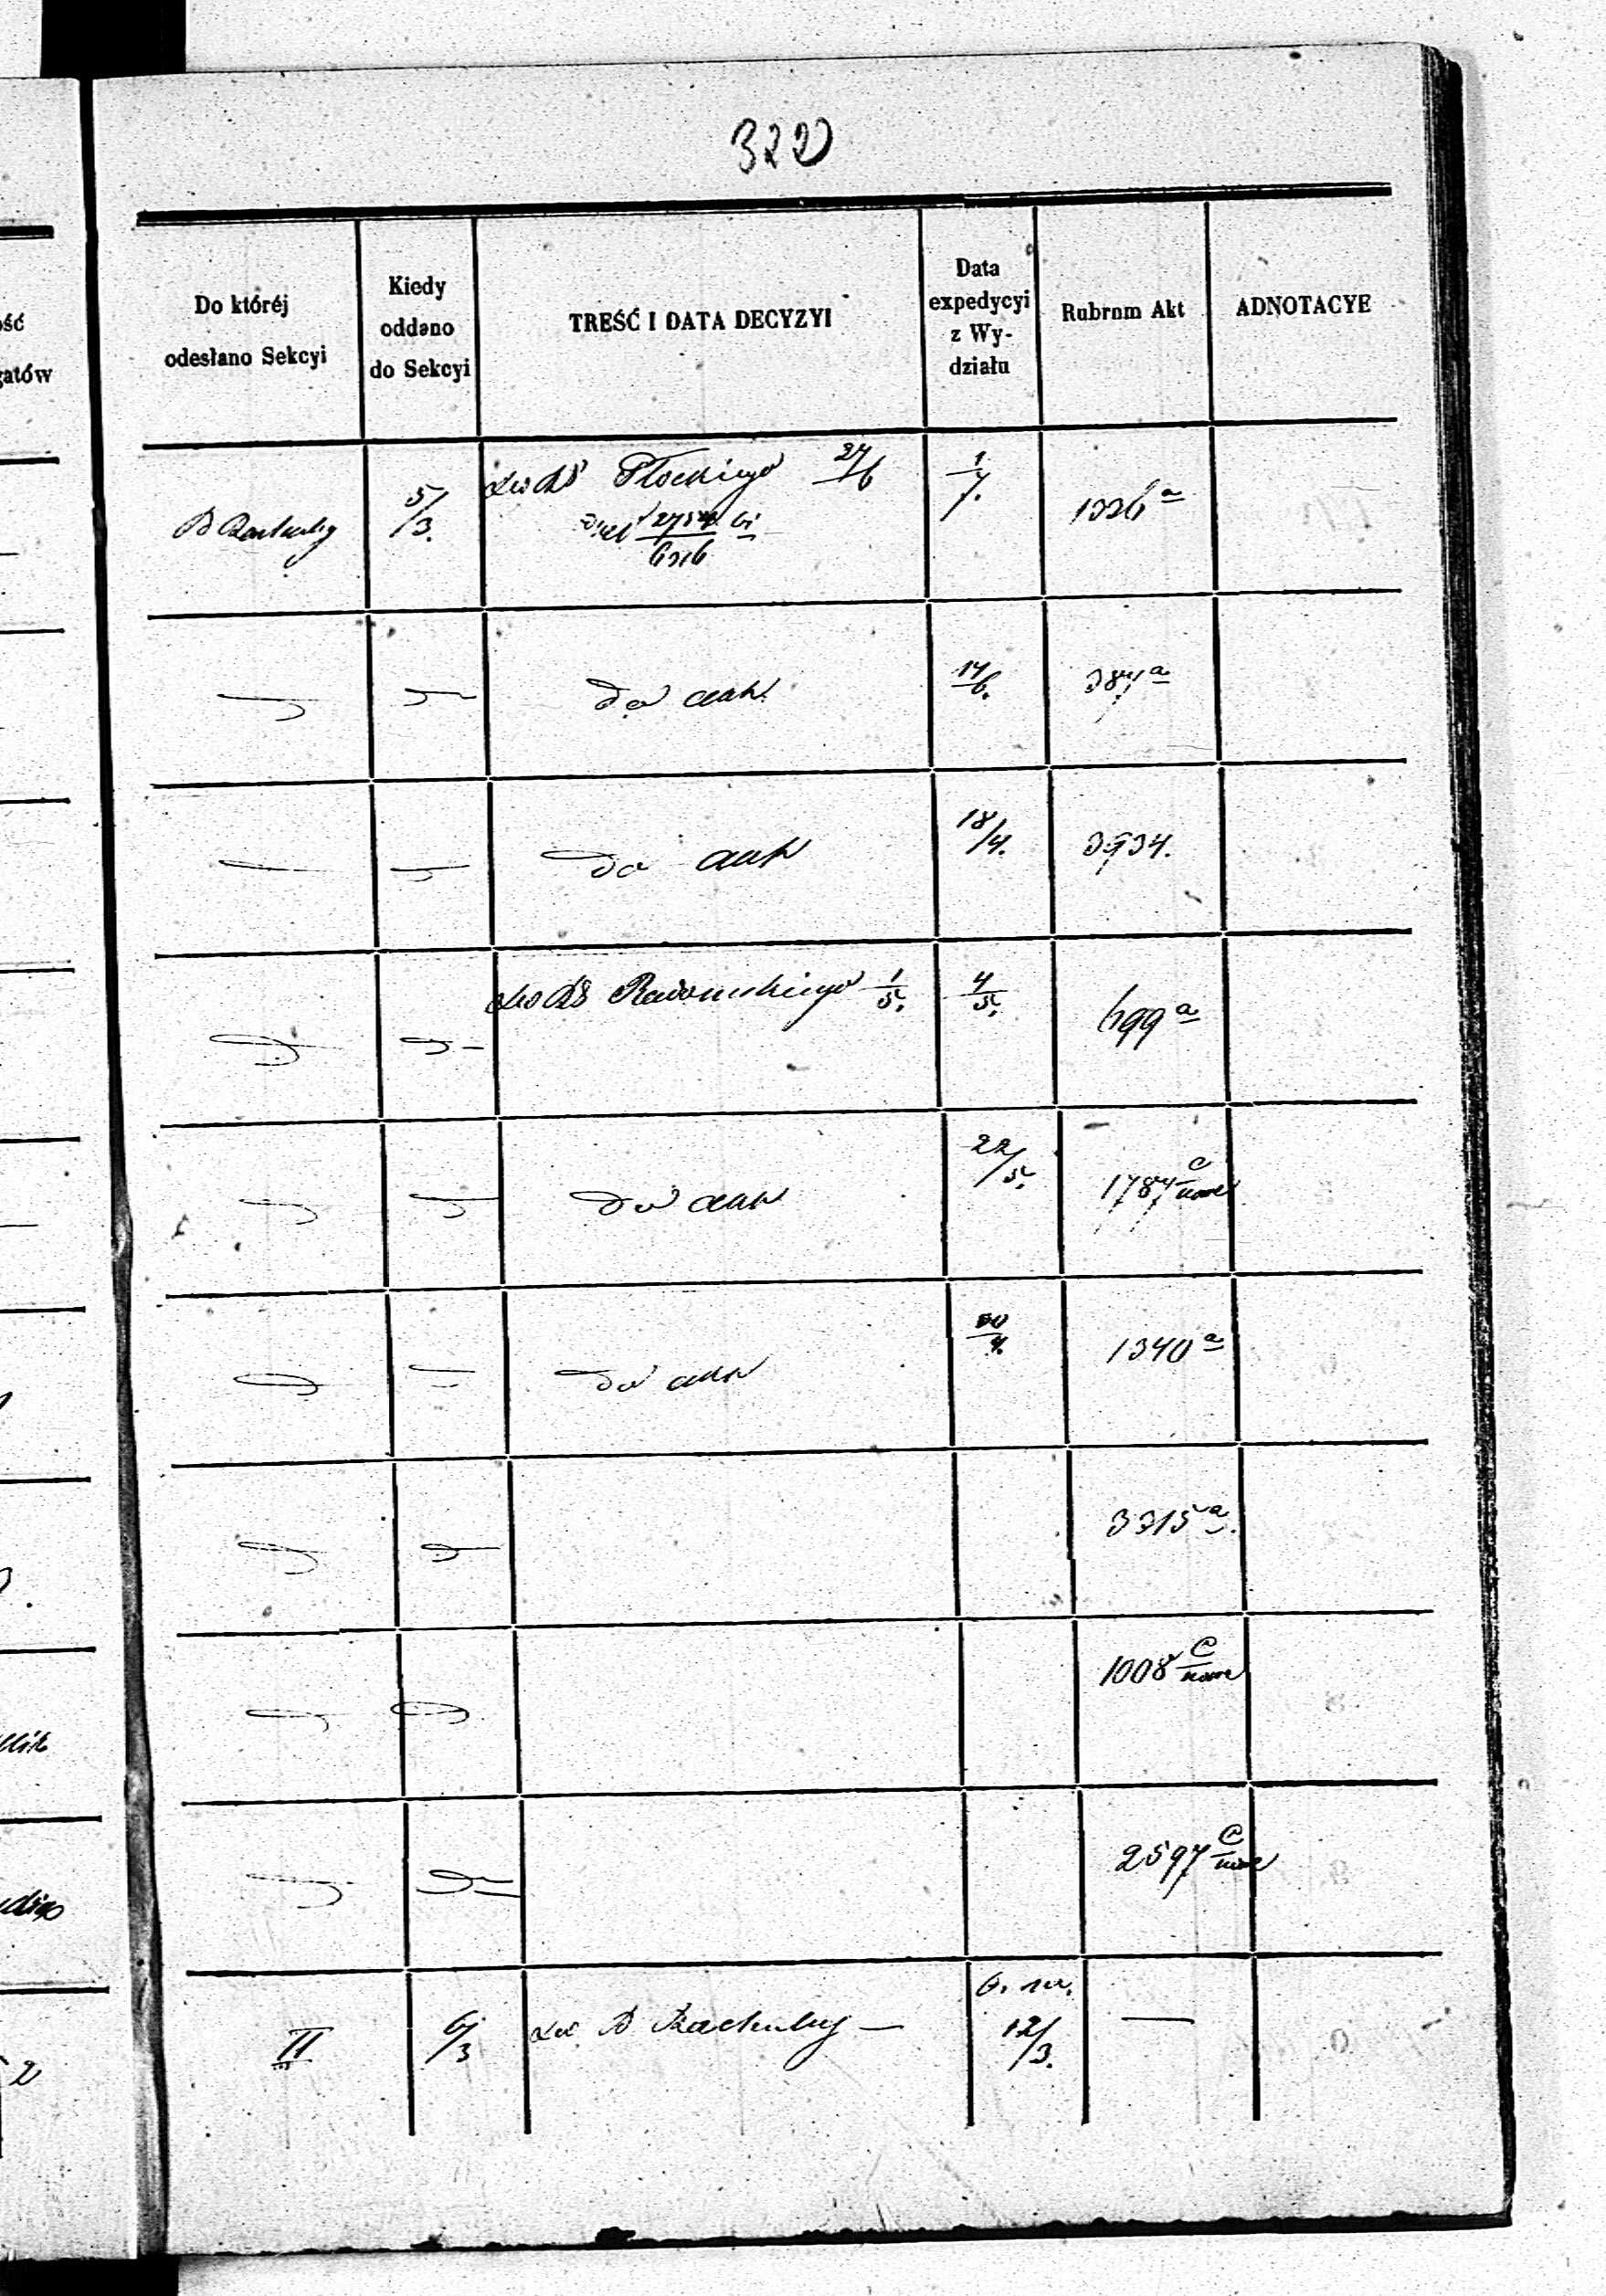 322
ość
gatów
Do któréj
odesłano Sekcyi
Kiedy
oddano
do Sekcyi
TREŚĆ I DATA DECYZYI
Data
expedycyi
z Wy-
działu
Rubrum Akt
ADNOTACYE
B Rachuby
5/3.
Płockiego 27/6
1/7.
1326 a
6316
do akt.
14/6.
387 a
do akt
18/4.
3934.
Radomskiego 1/5.
4/5.
699 a
do akt
22/5.
1787 C nowe
do akt
1340 a
3315 a.
1008 C nowe
2597 C nowe
II
6/3
do B Rachuby —
12/3.
—
2